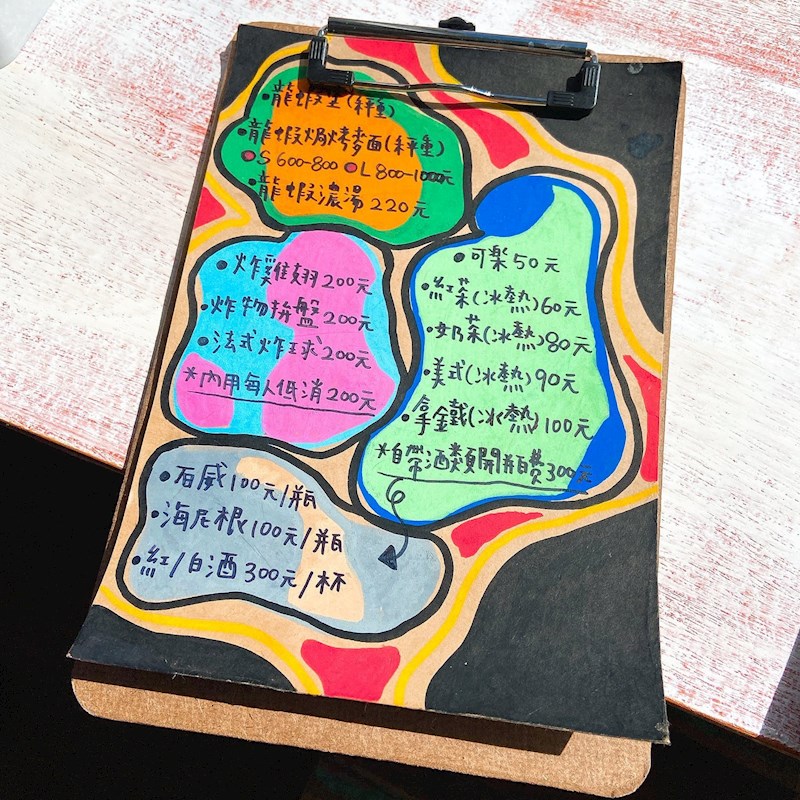 •龍蝦堡(秤重)
•龍蝦焗烤麥面(秤重)
●S 600-800 ●L 800-1000元
•龍蝦濃湯 220元
•炸雞翅 200元
•炸物拚盤 200元
•法式炸球 200元
*內用每人低消 200元
•可樂 50元
•紅茶(冰熱) 60元
•奶茶(冰熱) 80元
•美式(冰熱) 90元
•拿鐵(冰熱) 100元
*自帶酒類開瓶費 300元
•石威 100元/瓶
•海尼根 100元/瓶
•紅/白酒 300元/杯